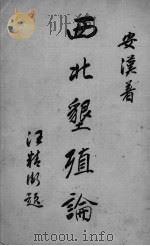 安漢著
西北墾殖論
汪精衛題